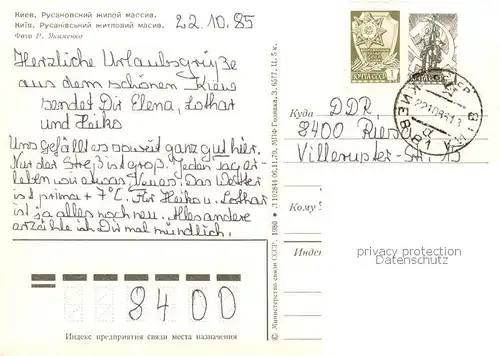 Киев. Русановский жилой массив.
Київ. Русанівський житловий масив.
Фото Р. Якименко
22.10.85
Herzliche Urlaubsgrüße
aus dem schönen Kiew
sendet Dir Elena, Lothar
und Heiko
Uns gefällt es soweit ganz gut hier.
Nur der Streß ist groß. Jeden Tag er-
leben wir etwas Neues. Das Wetter
ist prima + 7°C. Für Heiko u. Lothar
ist ja alles noch neu. Alles andere
erzähle ich Dir mal mündlich.
8400
Индекс предприятия связи места назначения
© Министерство связи СССР. 1980
11. 5 к.
ПОЧТА СССР
Куда DDR,
8400 Riesa
Кому
Индекс
privacy protection
Datenschutz